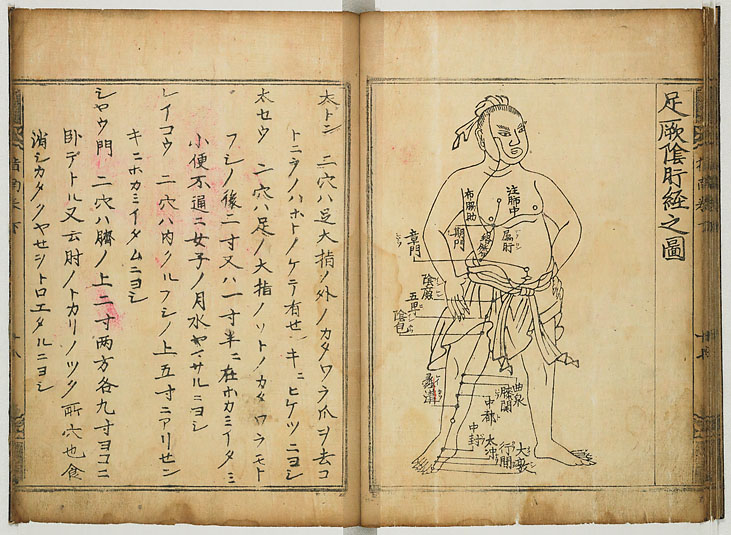 足厥陰肝経之圖
注肺中
布脇助
属肝
絡
期門
章門
陰廉
五里
陰包
曲泉
膝関
中都
蠡溝
中封
太冲
行間
大敦
太トン 二穴ハ足大指ノ外ノカタワラ爪ヲ去コ
トニラノハホトノケテ有せン キニヒケツニヨシ
太セウ 二穴ハ足ノ大指ノツトノカタワラモト
フシノ後二寸又ハ一寸半ニ在ホカミイタミ
小便不通ニ女子ノ月水ヤマサルニヨシ
レイコウ 二穴ハ内クルフシノ上五寸ニアリセン
キニホカミイタムニヨシ
シヤウ門 二穴ハ臍ノ上二寸両方各九寸ヨコニ
臥デトル又云肘ノトカリノツク所穴也食
消シカタクヤセシトロエタルニヨシ